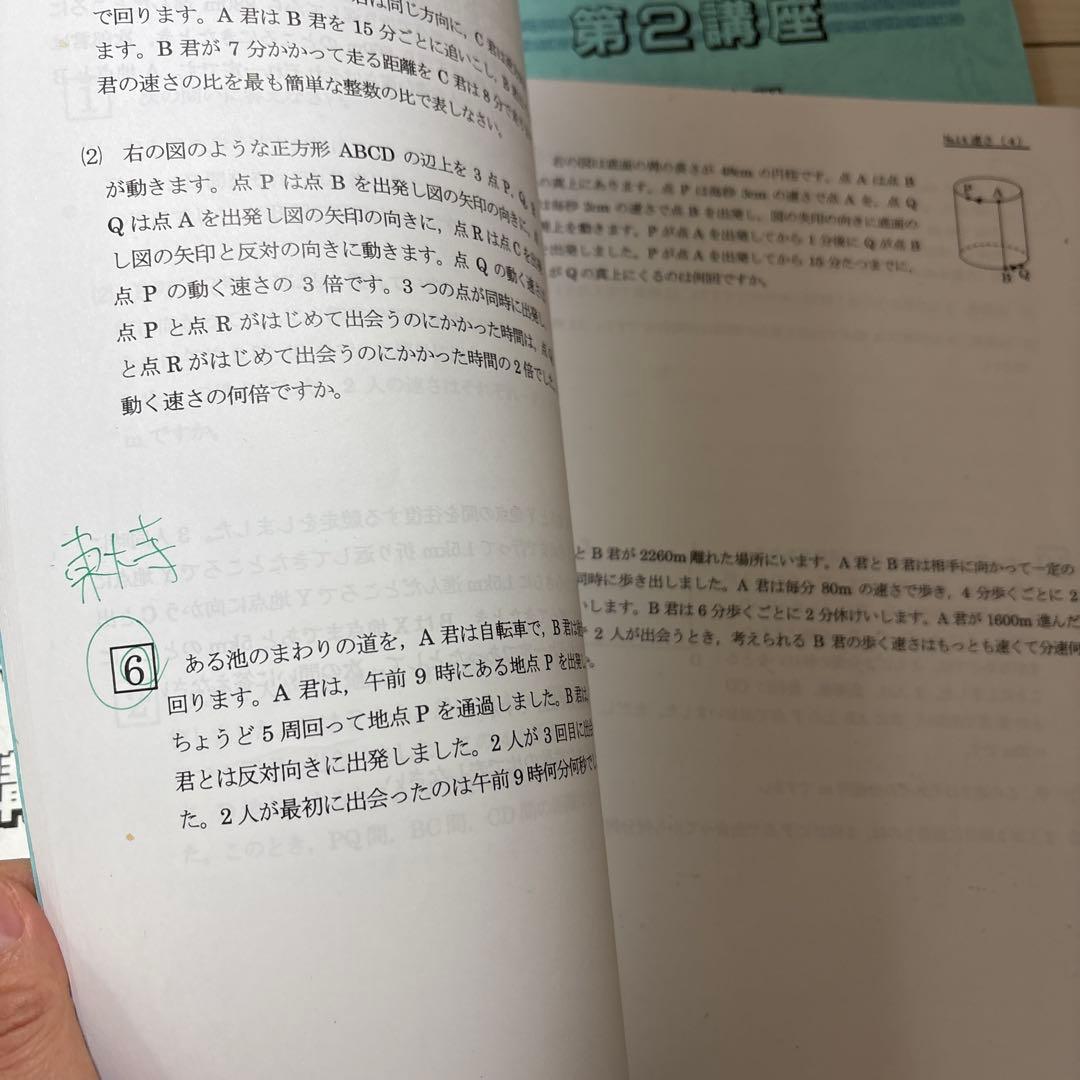 第2講座
で回ります。A君はB君を15分ごとに追いこし，B
ます。B君が7分かかって走る距離をC君は8分で
君の速さの比を最も簡単な整数の比で表しなさい。
(2) 右の図のような正方形ABCDの辺上を3点P，Q，
が動きます。点Pは点Bを出発し図の矢印の向きに，
Qは点Aを出発し図の矢印の向きに，点Rは点Cを出
し図の矢印と反対の向きに動きます。点Qの動く速さ
点Pの動く速さの3倍です。3つの点が同時に出発し，
点Pと点Rがはじめて出会うのにかかった時間は，点Q
と点Rがはじめて出会うのにかかった時間の2倍でした。
動く速さの何倍ですか。
東大寺
6 ある池のまわりの道を，A君は自転車で，B君は
回ります。A君は，午前9時にある地点Pを出発し
ちょうど5周回って地点Pを通過しました。B君は，
君とは反対向きに出発しました。2人が3回目に出会
た。2人が最初に出会ったのは午前9時何分何秒でし
速さ（4）
右の図は底面の周の長さが48cmの円柱です。点Aは点B
の真上にあります。点Pは毎秒3cmの速さで点Aを，点Q
は毎秒2cmの速さで点Bを出発し，図の矢印の向きに底面の
周上を動きます。Pが点Aを出発してから1分後にQが点B
を出発しました。Pが点Aを出発してから15分たつまでに，
PがQの真上にくるのは何回ですか。
P A
B Q
とB君が2260m離れた場所にいます。A君とB君は相手に向かって一定の
同時に歩き出しました。A君は毎分80mの速さで歩き，4分歩くごとに2
いします。B君は6分歩くごとに2分休けいします。A君が1600m進んだ
2人が出会うとき，考えられるB君の歩く速さはもっとも速くて分速何